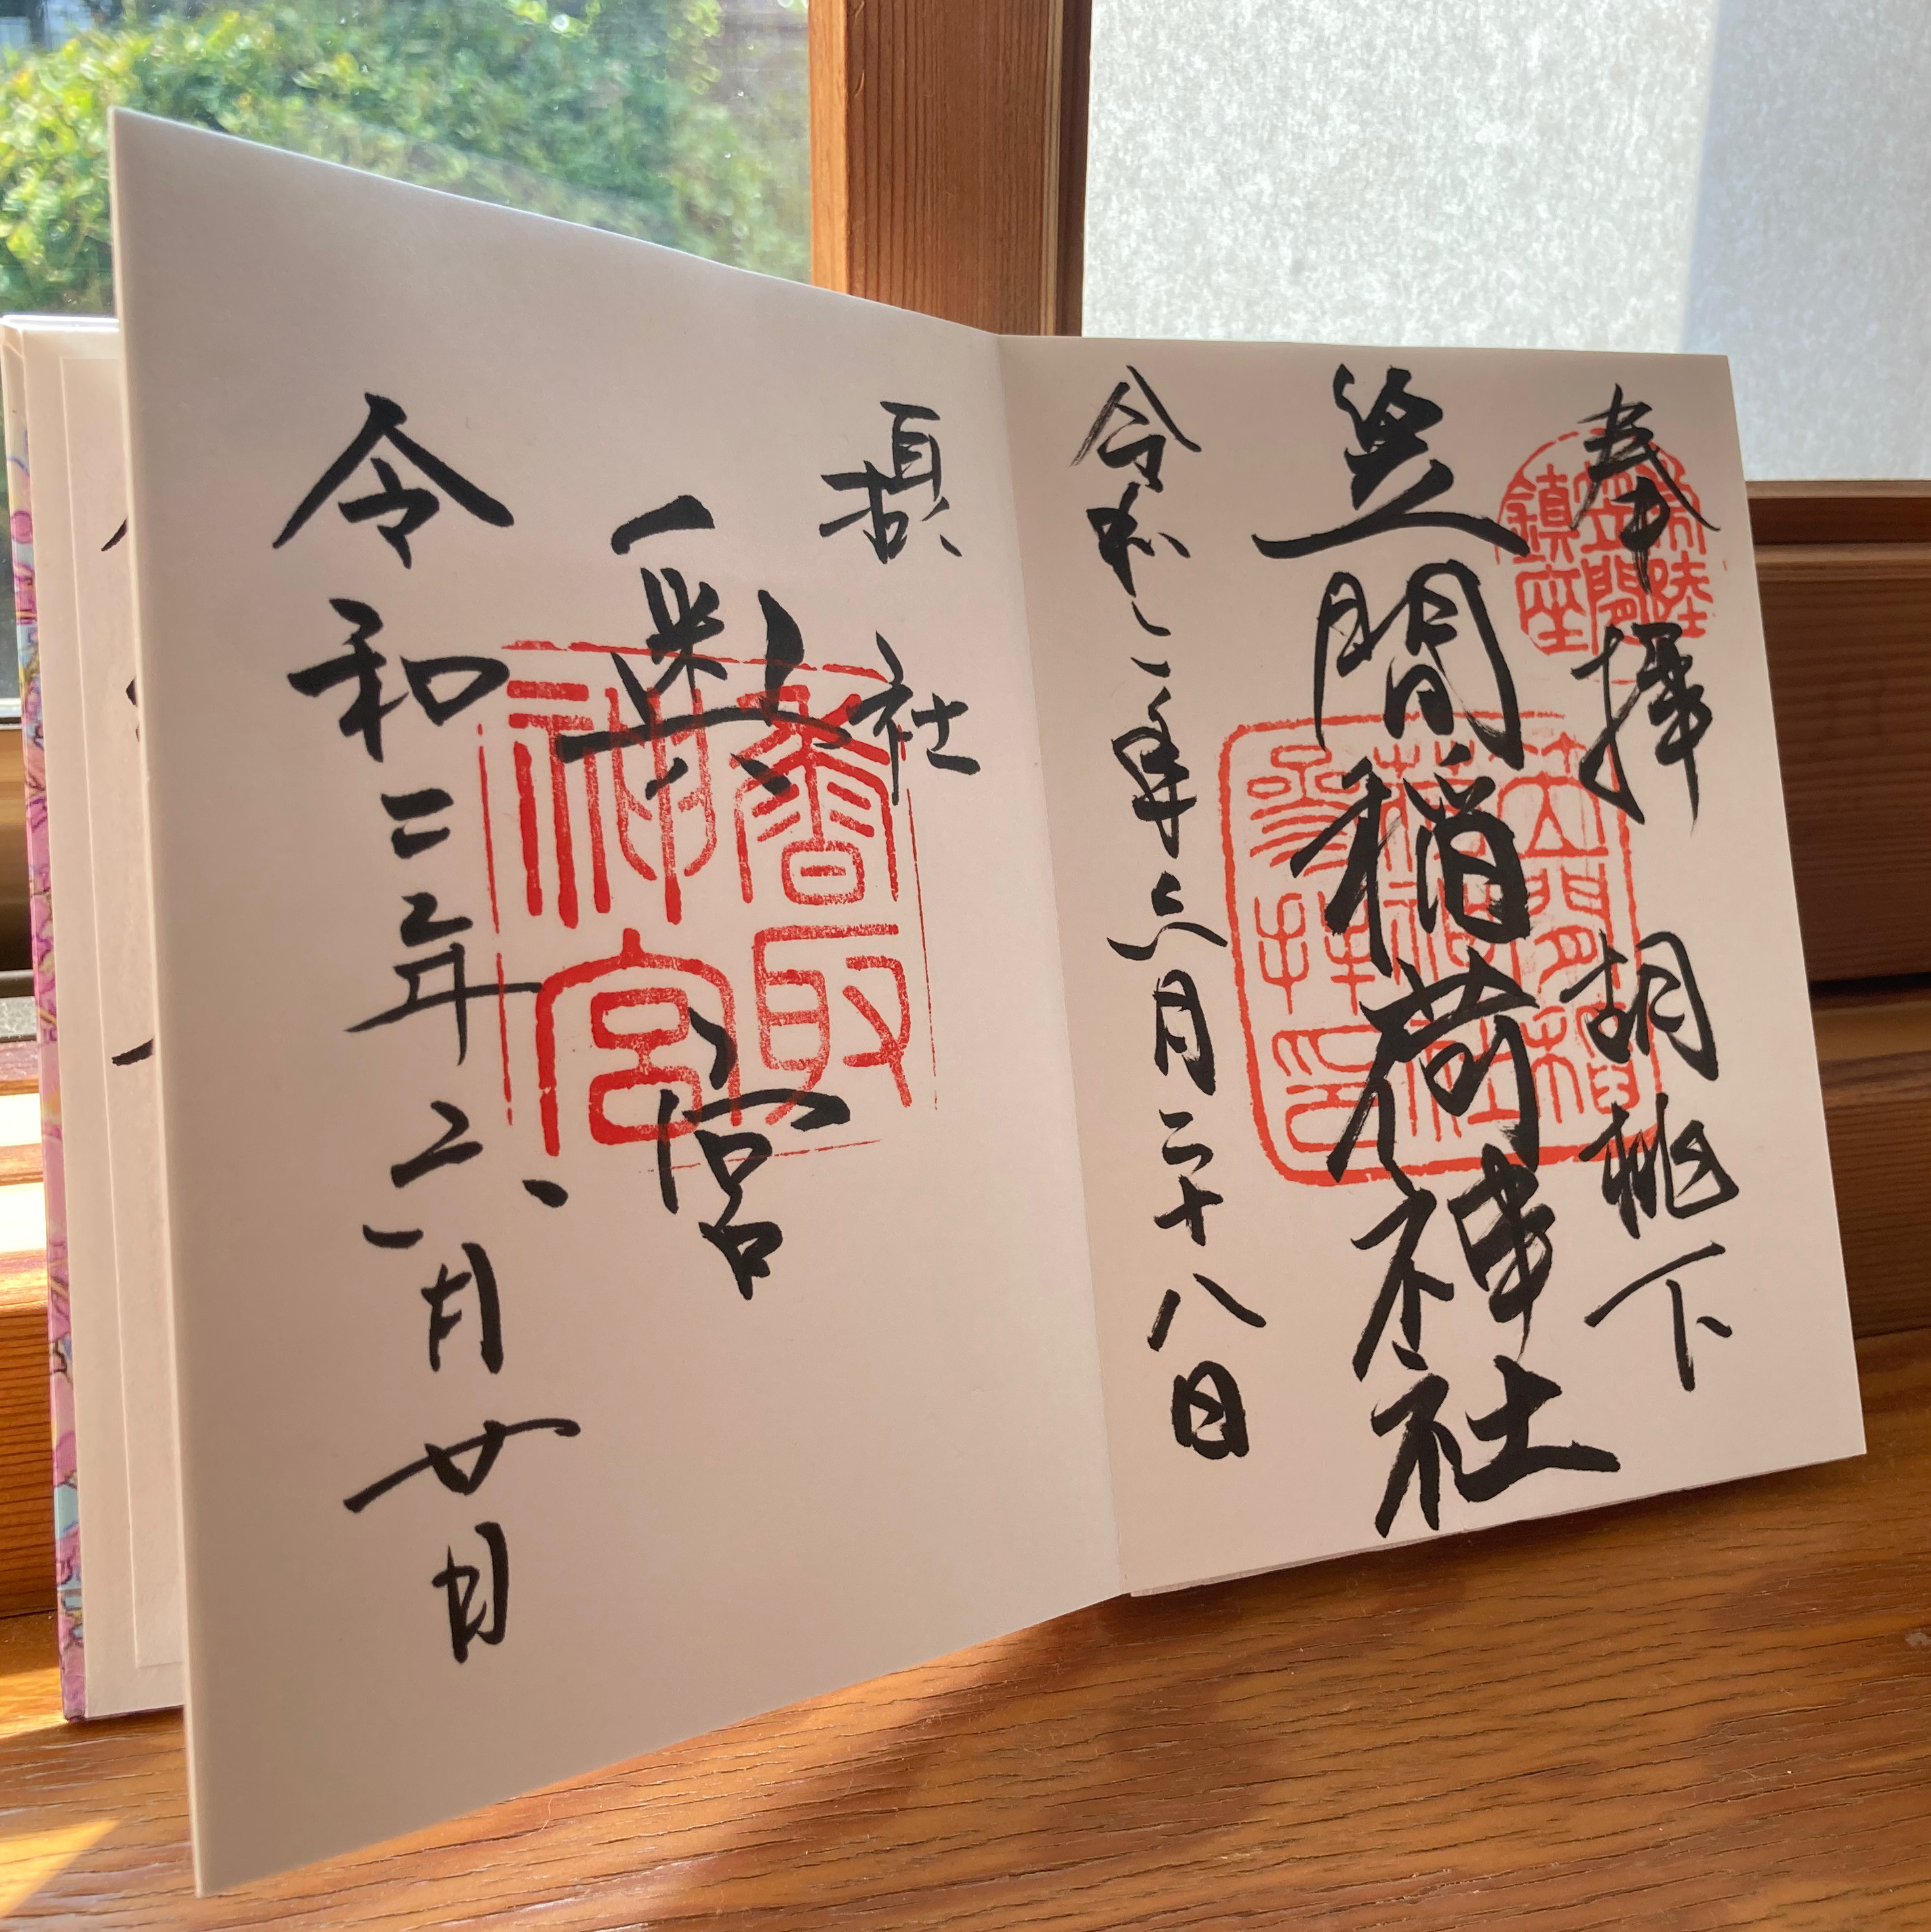 奉拝 胡桃下
常陸
笠間
鎮座
笠間稲荷神社
笠間稲
荷神社
参拝印
令和二年六月二十八日
社
奥宮
香取
神宮
令和二年 月廿日